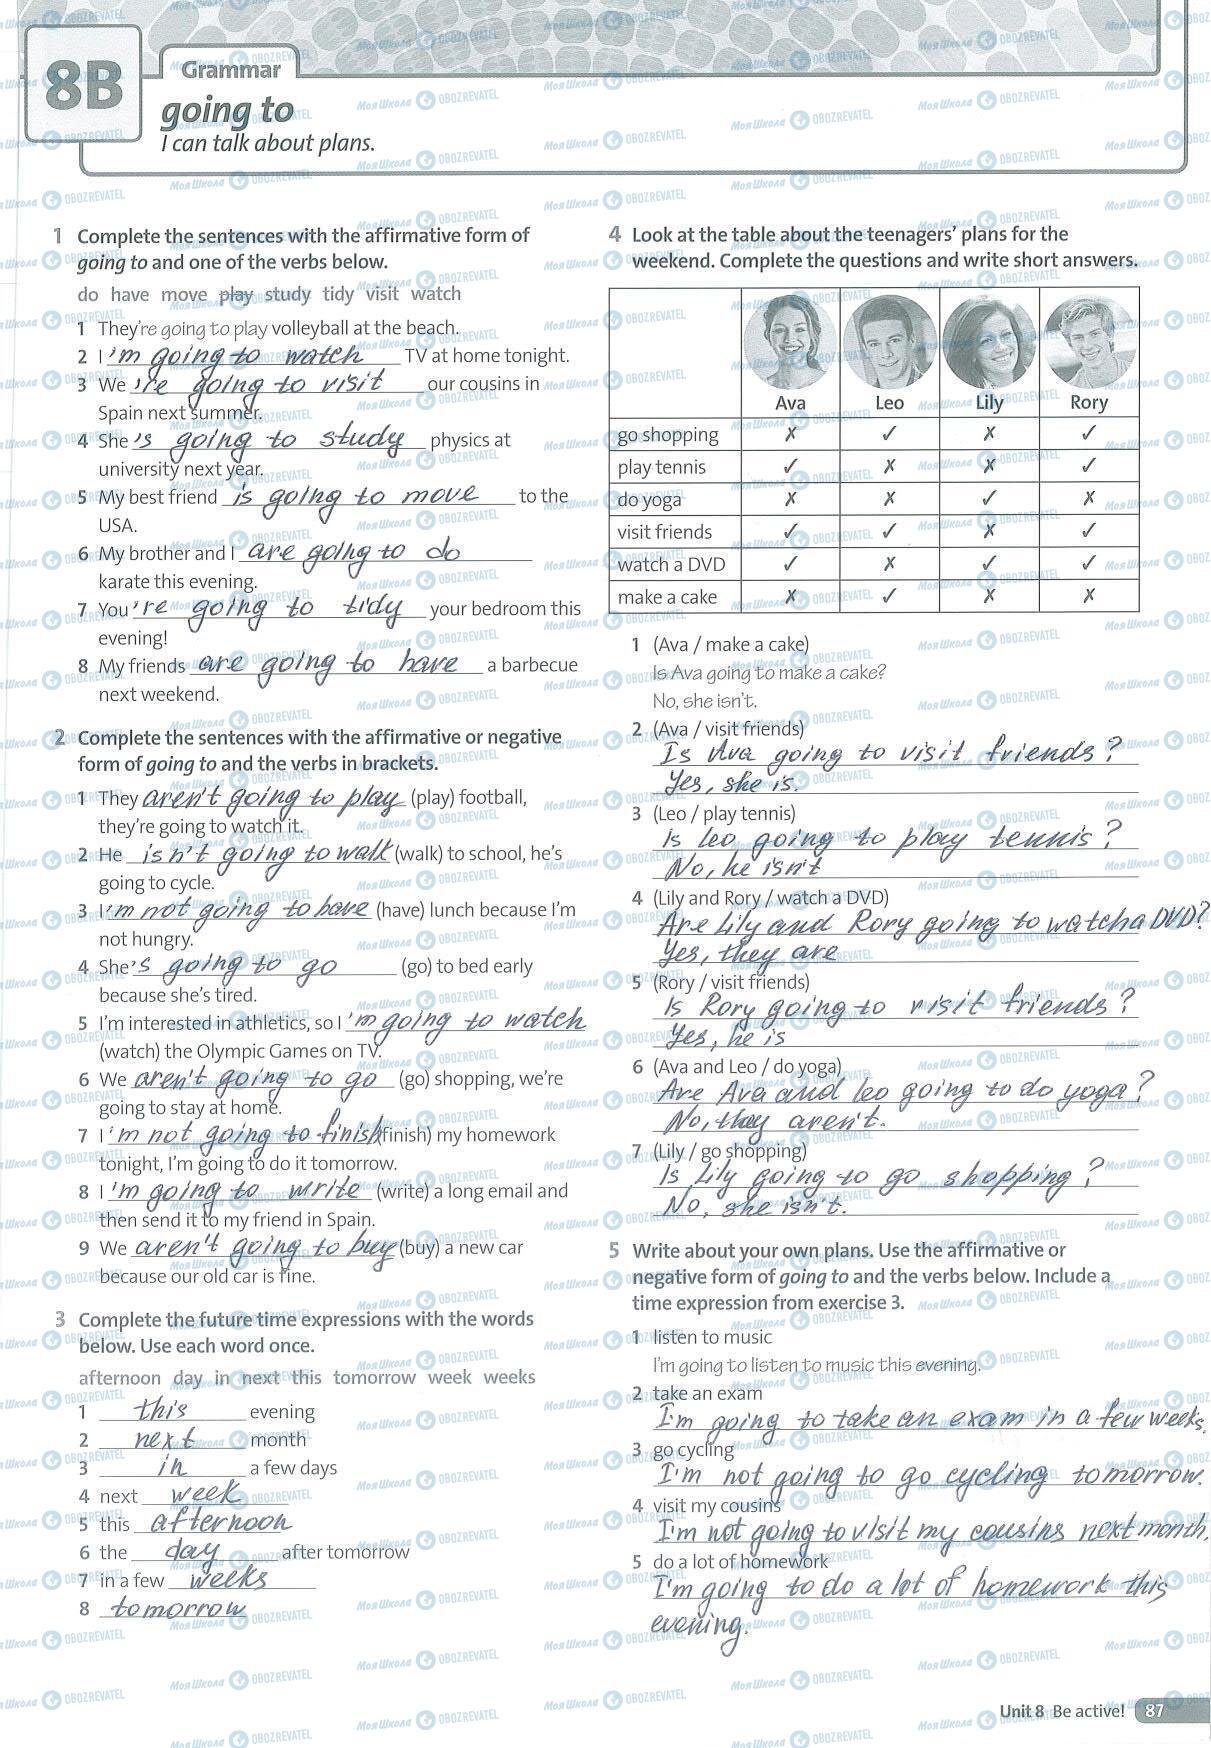 8B
Grammar
going to
I can talk about plans.
1 Complete the sentences with the affirmative form of
going to and one of the verbs below.
do have move play study tidy visit watch
1 They're going to play volleyball at the beach.
2 I 'm going to watch TV at home tonight.
3 We 're going to visit our cousins in
Spain next summer.
4 She 's going to study physics at
university next year.
5 My best friend is going to move to the
USA.
6 My brother and I are going to do
karate this evening.
7 You 're going to tidy your bedroom this
evening!
8 My friends are going to have a barbecue
next weekend.
2 Complete the sentences with the affirmative or negative
form of going to and the verbs in brackets.
1 They aren't going to play (play) football,
they're going to watch it.
2 He isn't going to walk (walk) to school, he's
going to cycle.
3 I 'm not going to have (have) lunch because I'm
not hungry.
4 She 's going to go (go) to bed early
because she's tired.
5 I'm interested in athletics, so I 'm going to watch
(watch) the Olympic Games on TV.
6 We aren't going to go (go) shopping, we're
going to stay at home.
7 I 'm not going to finish (finish) my homework
tonight, I'm going to do it tomorrow.
8 I 'm going to write (write) a long email and
then send it to my friend in Spain.
9 We aren't going to buy (buy) a new car
because our old car is fine.
3 Complete the future time expressions with the words
below. Use each word once.
afternoon day in next this tomorrow week weeks
1 this evening
2 next month
3 in a few days
4 next week
5 this afternoon
6 the day after tomorrow
7 in a few weeks
8 tomorrow
4 Look at the table about the teenagers' plans for the
weekend. Complete the questions and write short answers.
Ava Leo Lily Rory
go shopping ✗ ✓ ✗ ✓
play tennis ✓ ✗ ✗ ✓
do yoga ✗ ✗ ✓ ✗
visit friends ✓ ✓ ✗ ✓
watch a DVD ✓ ✗ ✓ ✓
make a cake ✗ ✓ ✗ ✗
1 (Ava / make a cake)
Is Ava going to make a cake?
No, she isn't.
2 (Ava / visit friends)
Is Ava going to visit friends?
Yes, she is.
3 (Leo / play tennis)
Is Leo going to play tennis?
No, he isn't
4 (Lily and Rory / watch a DVD)
Are Lily and Rory going to watch a DVD?
Yes, they are
5 (Rory / visit friends)
Is Rory going to visit friends?
Yes, he is
6 (Ava and Leo / do yoga)
Are Ava and Leo going to do yoga?
No, they aren't.
7 (Lily / go shopping)
Is Lily going to go shopping?
No, she isn't.
5 Write about your own plans. Use the affirmative or
negative form of going to and the verbs below. Include a
time expression from exercise 3.
1 listen to music
I'm going to listen to music this evening.
2 take an exam
I'm going to take an exam in a few weeks.
3 go cycling
I'm not going to go cycling tomorrow.
4 visit my cousins
I'm not going to visit my cousins next month.
5 do a lot of homework
I'm going to do a lot of homework this
evening.
Unit 8 Be active! 87
МояШкола OBOZREVATEL